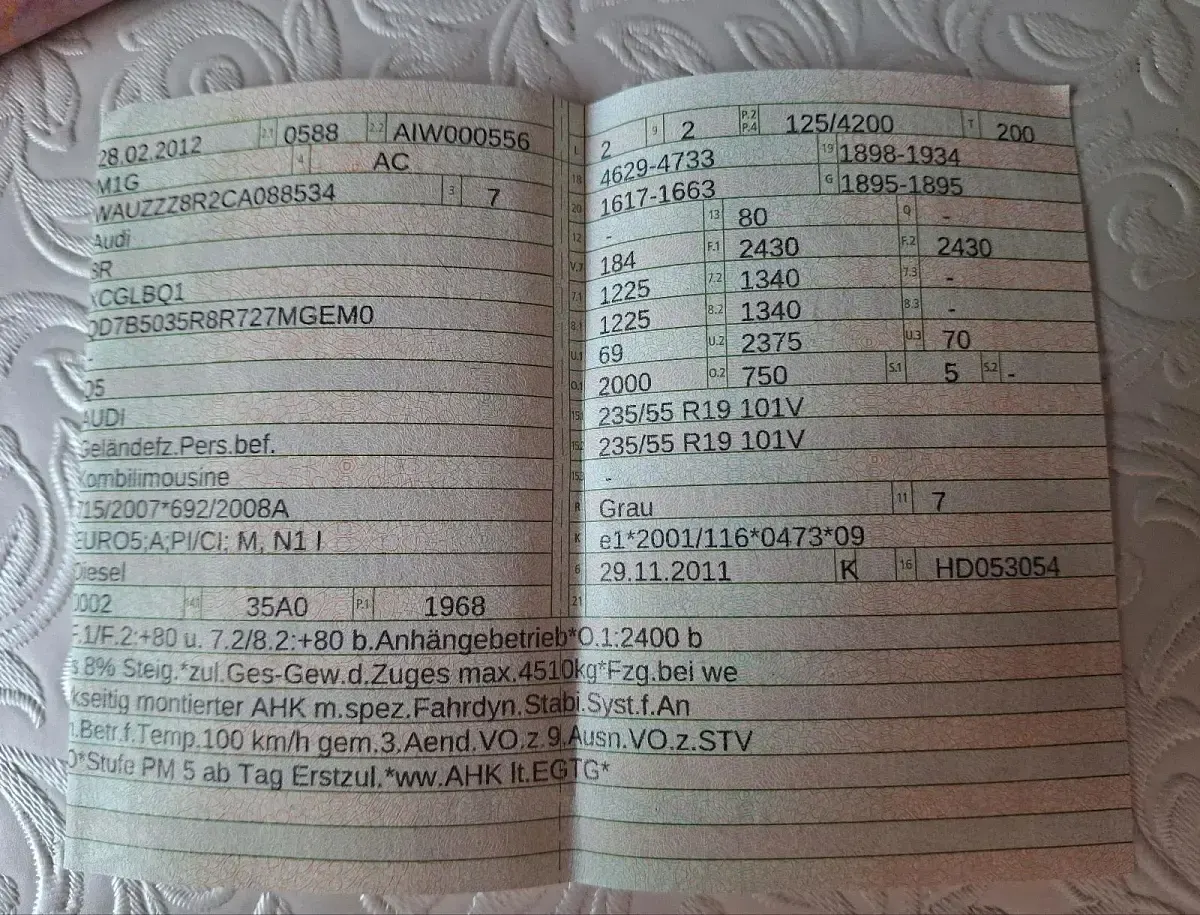 28.02.2012 2.1 0588 2.2 AIW000556
M1G 4 AC
WAUZZZ8R2CA088534 3 7
Audi
8R
XCGLBQ1
QD7B5035R8R727MGEM0
Q5
AUDI
Geländefz.Pers.bef.
Kombilimousine
715/2007*692/2008A
EURO5;A;PI/CI; M, N1 I
Diesel
0002 14.1 35A0 P.1 1968
L 2 9 2 P.2 P.4 125/4200 T 200
18 4629-4733 19 1898-1934
20 1617-1663 G 1895-1895
12 - 13 80 Q -
V.7 184 F.1 2430 F.2 2430
7.1 1225 7.2 1340 7.3 -
8.1 1225 8.2 1340 8.3 -
U.1 69 U.2 2375 U.3 70
O.1 2000 O.2 750 S.1 5 S.2 -
15.1 235/55 R19 101V
15.2 235/55 R19 101V
15.3 -
R Grau 11 7
K e1*2001/116*0473*09
6 29.11.2011 K 16 HD053054
21
F.1/F.2:+80 u. 7.2/8.2:+80 b.Anhängebetrieb*O.1:2400 b
s 8% Steig.*zul.Ges-Gew.d.Zuges max.4510kg*Fzg.bei we
kseitig montierter AHK m.spez.Fahrdyn.Stabi.Syst.f.An
.Betr.f.Temp.100 km/h gem.3.Aend.VO.z.9.Ausn.VO.z.STV
O*Stufe PM 5 ab Tag Erstzul.*ww.AHK lt.EGTG*